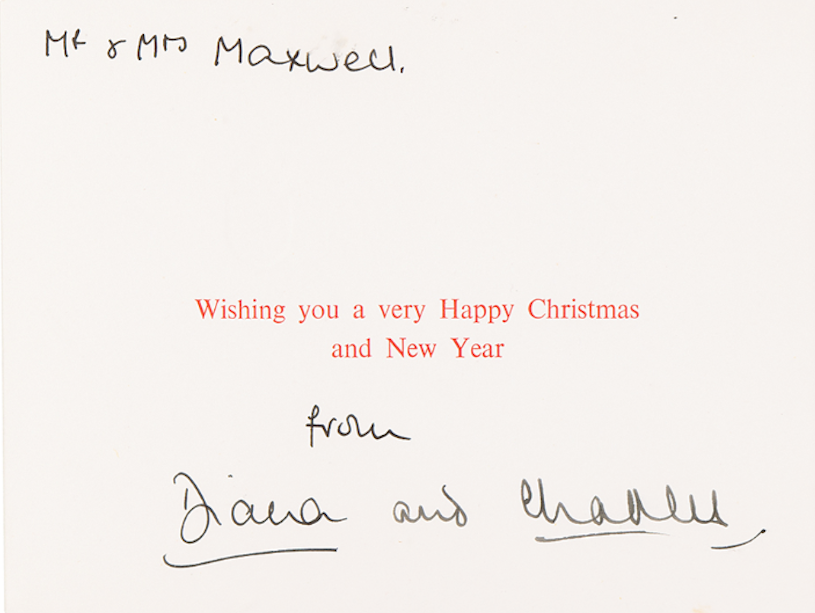 Mr & Mrs Maxwell.
Wishing you a very Happy Christmas
and New Year
from
Diana and Charles